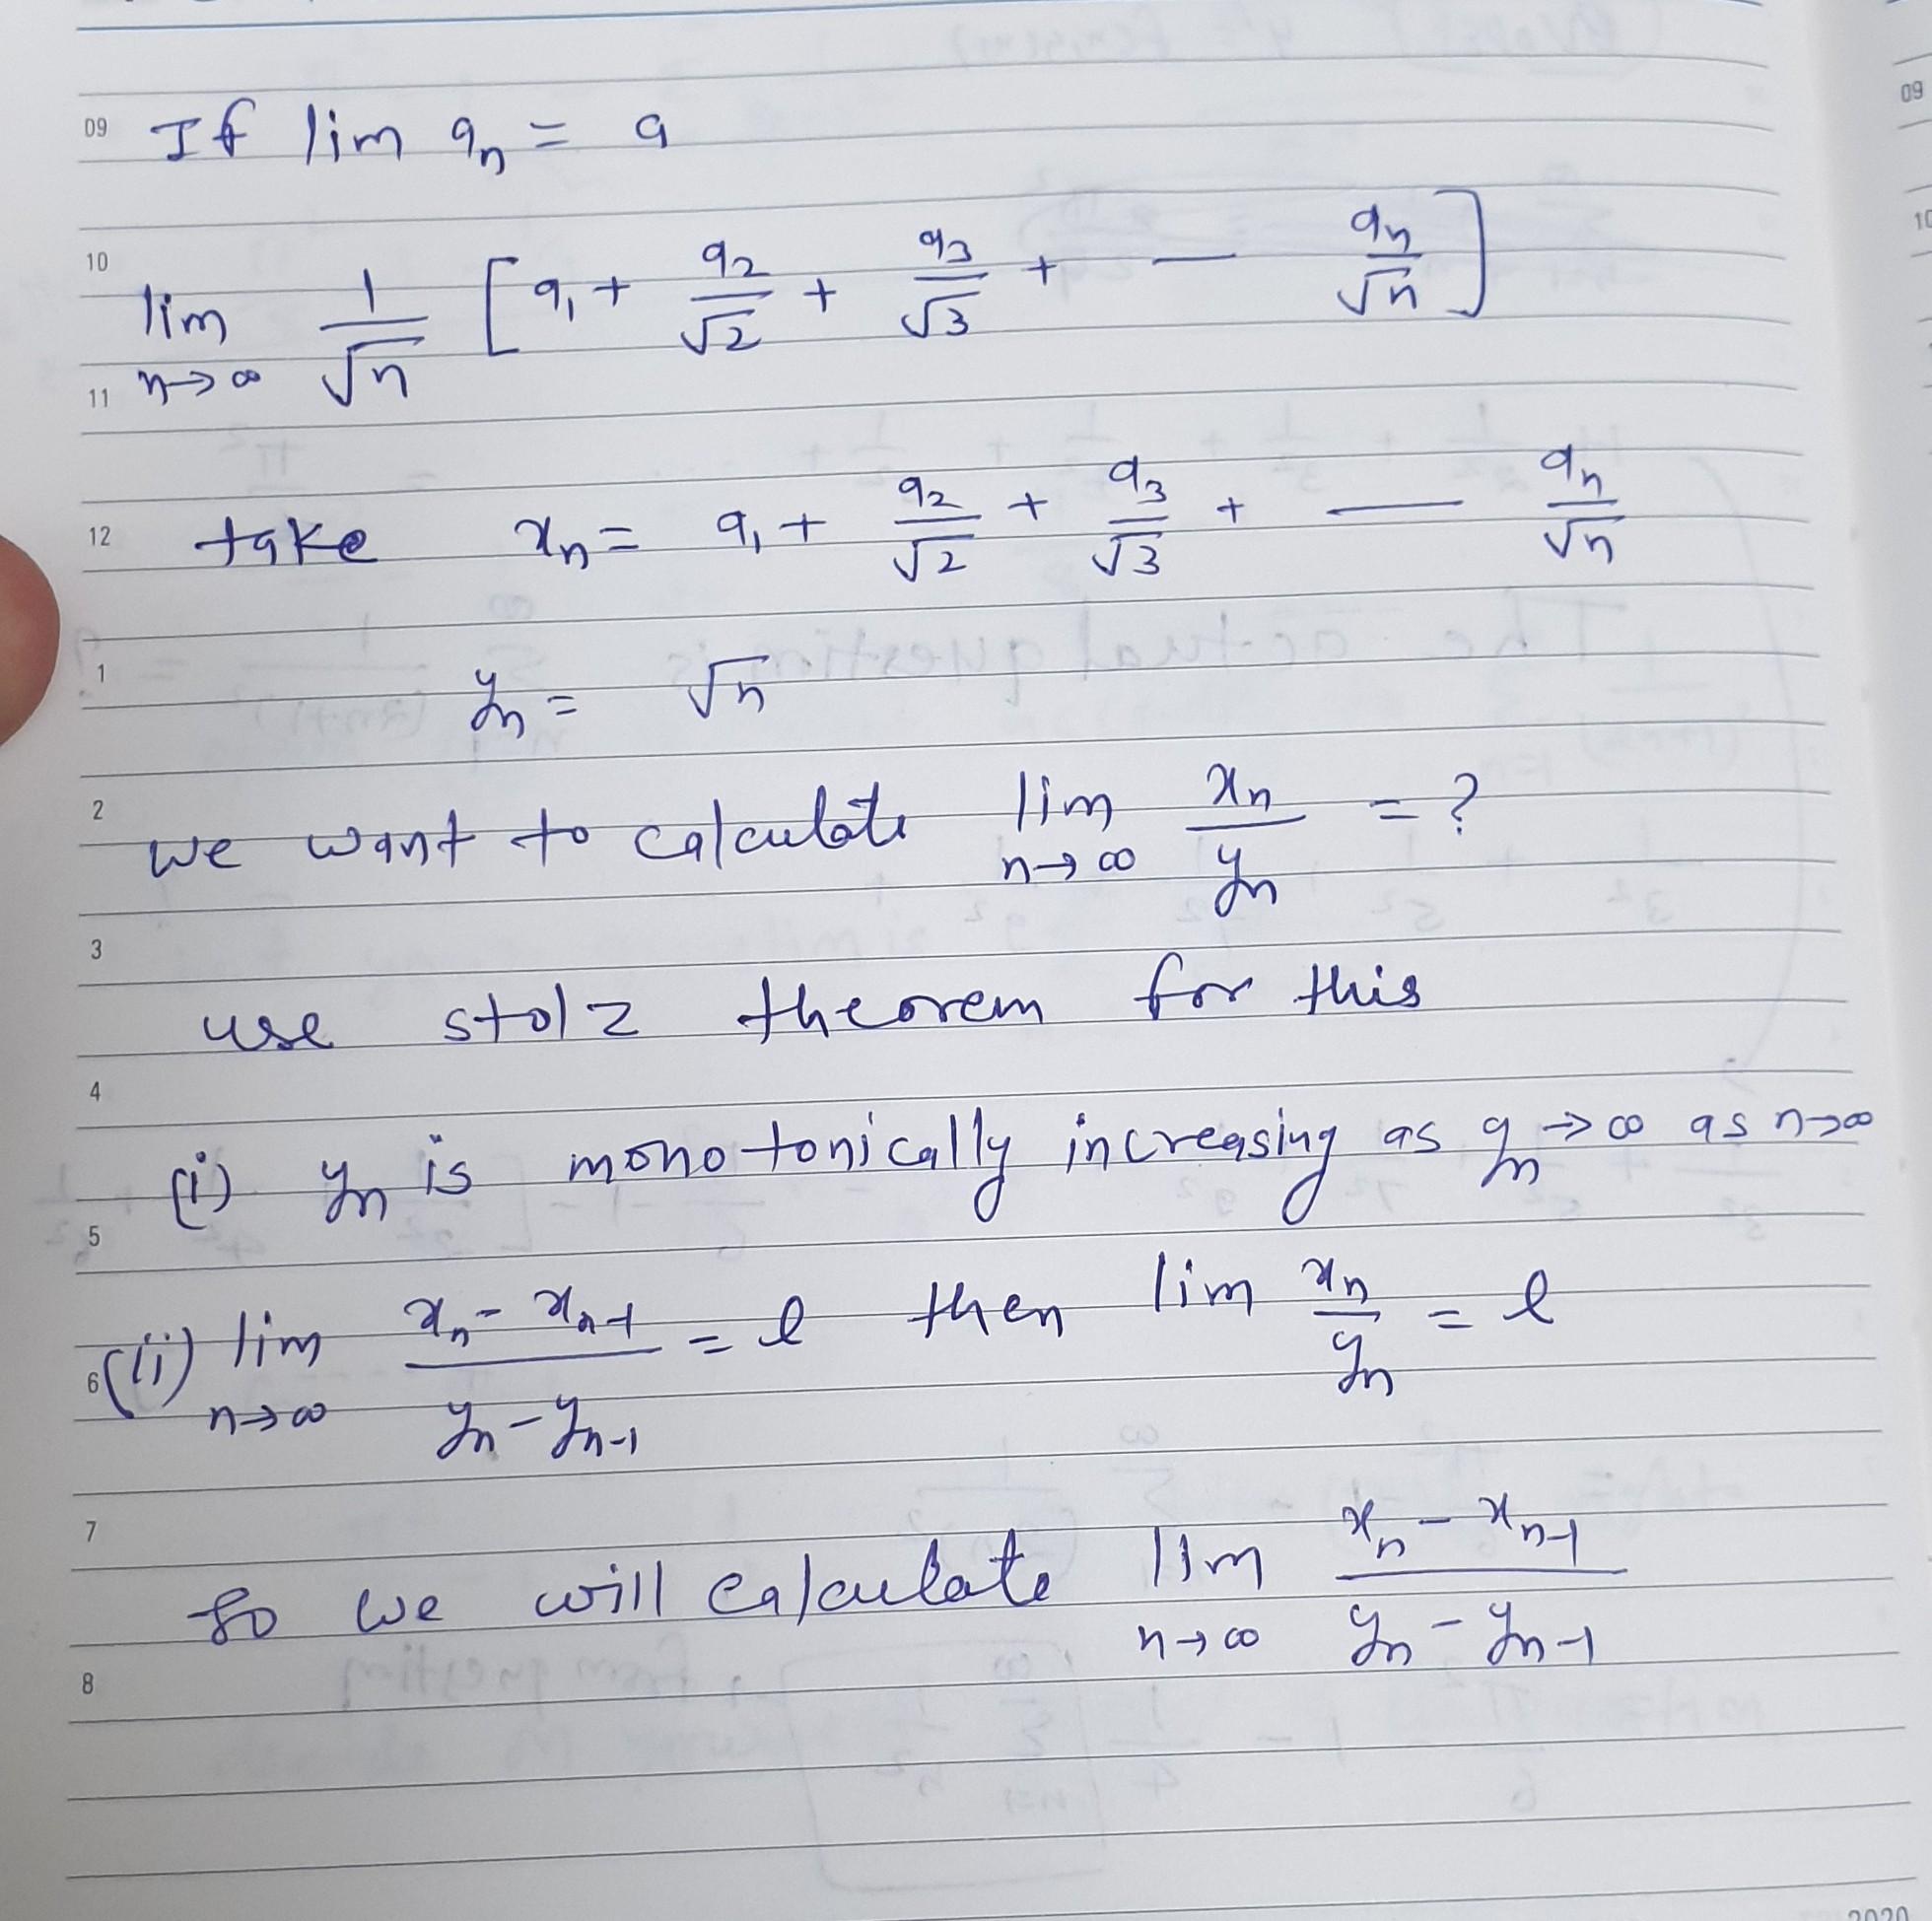 09 If lim a_n = a
10 lim n→∞ 1/√n [a_1 + a_2/√2 + a_3/√3 + — a_n/√n]
11
12 take x_n = a_1 + a_2/√2 + a_3/√3 + — a_n/√n
1 y_n = √n
2 we want to calculate lim n→∞ x_n/y_n = ?
3 use stolz theorem for this
4
(i) y_n is monotonically increasing as y_n → ∞ as n→∞
5
6 (ii) lim n→∞ (x_n - x_n-1)/(y_n - y_n-1) = l then lim x_n/y_n = l
7
so we will calculate lim n→∞ (x_n - x_n-1)/(y_n - y_n-1)
8
09
10
2020